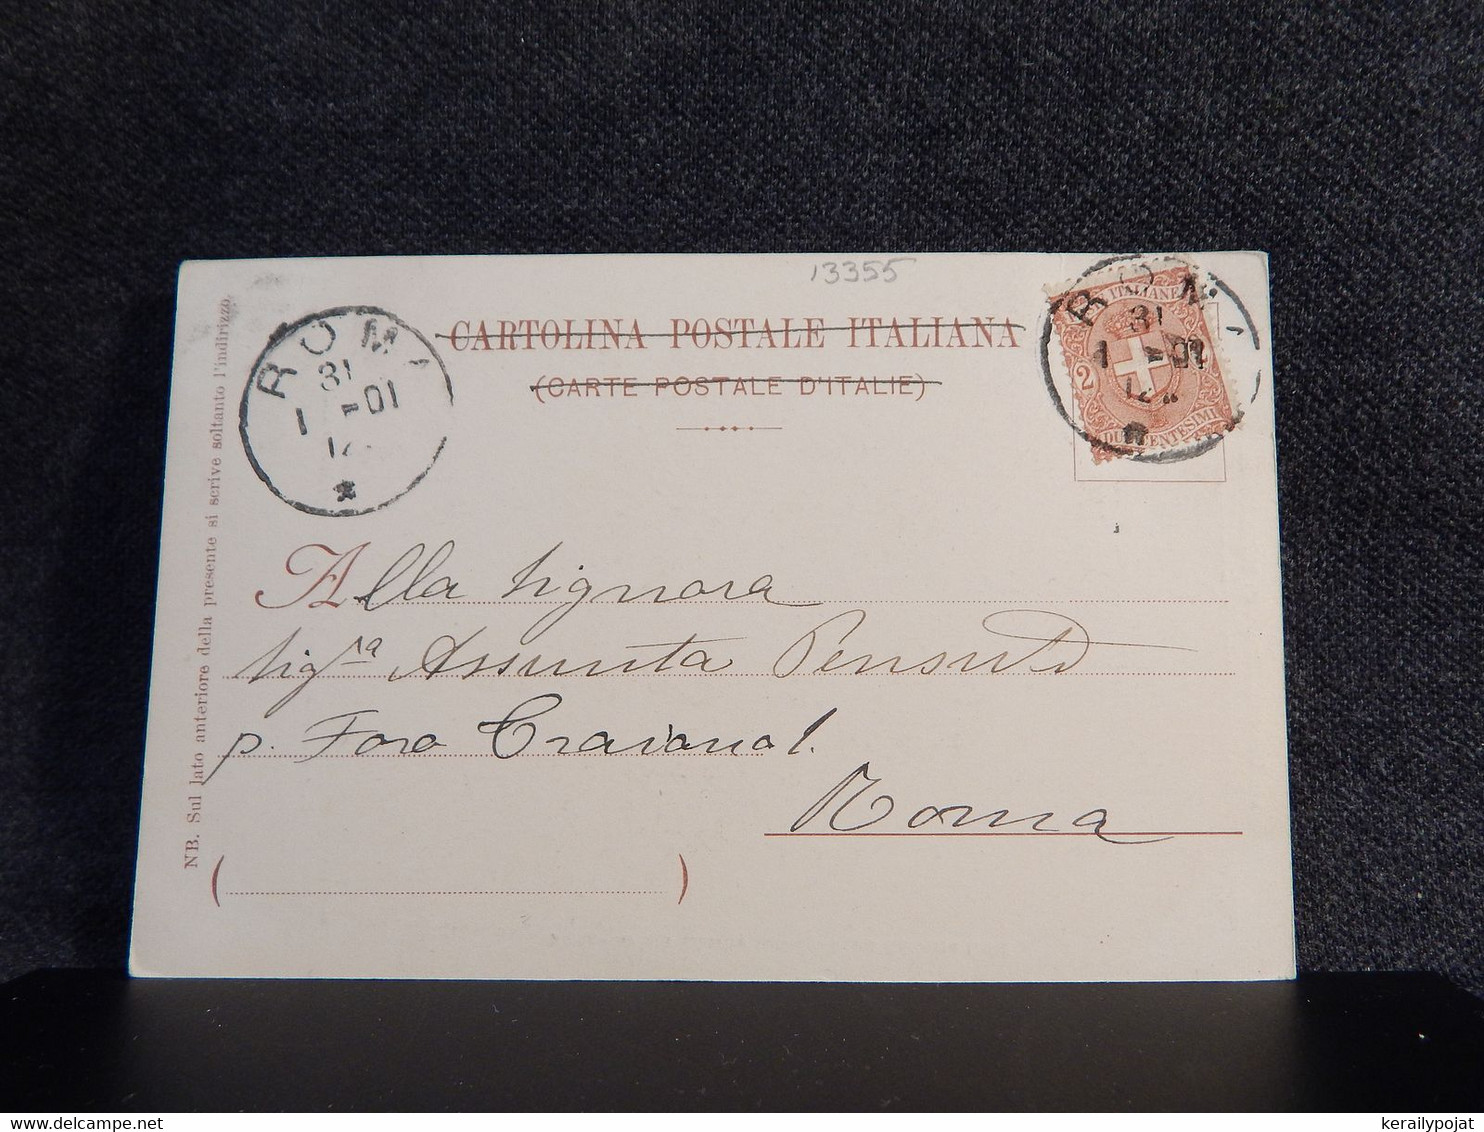 13355
CARTOLINA POSTALE ITALIANA
(CARTE POSTALE D'ITALIE)
ROMA
31
1 - 01
12
ROMA
31
1 - 01
12
ITALIANE
2
DUE CENTESIMI
NB. Sul lato anteriore della presente si scrive soltanto l'indirizzo.
Alla Signora
Sigra Assunta
p. Foro Traiano 1.
Roma
( )
kerailypojat